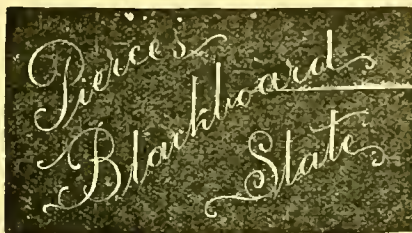 Pierce's
Blackboard
State